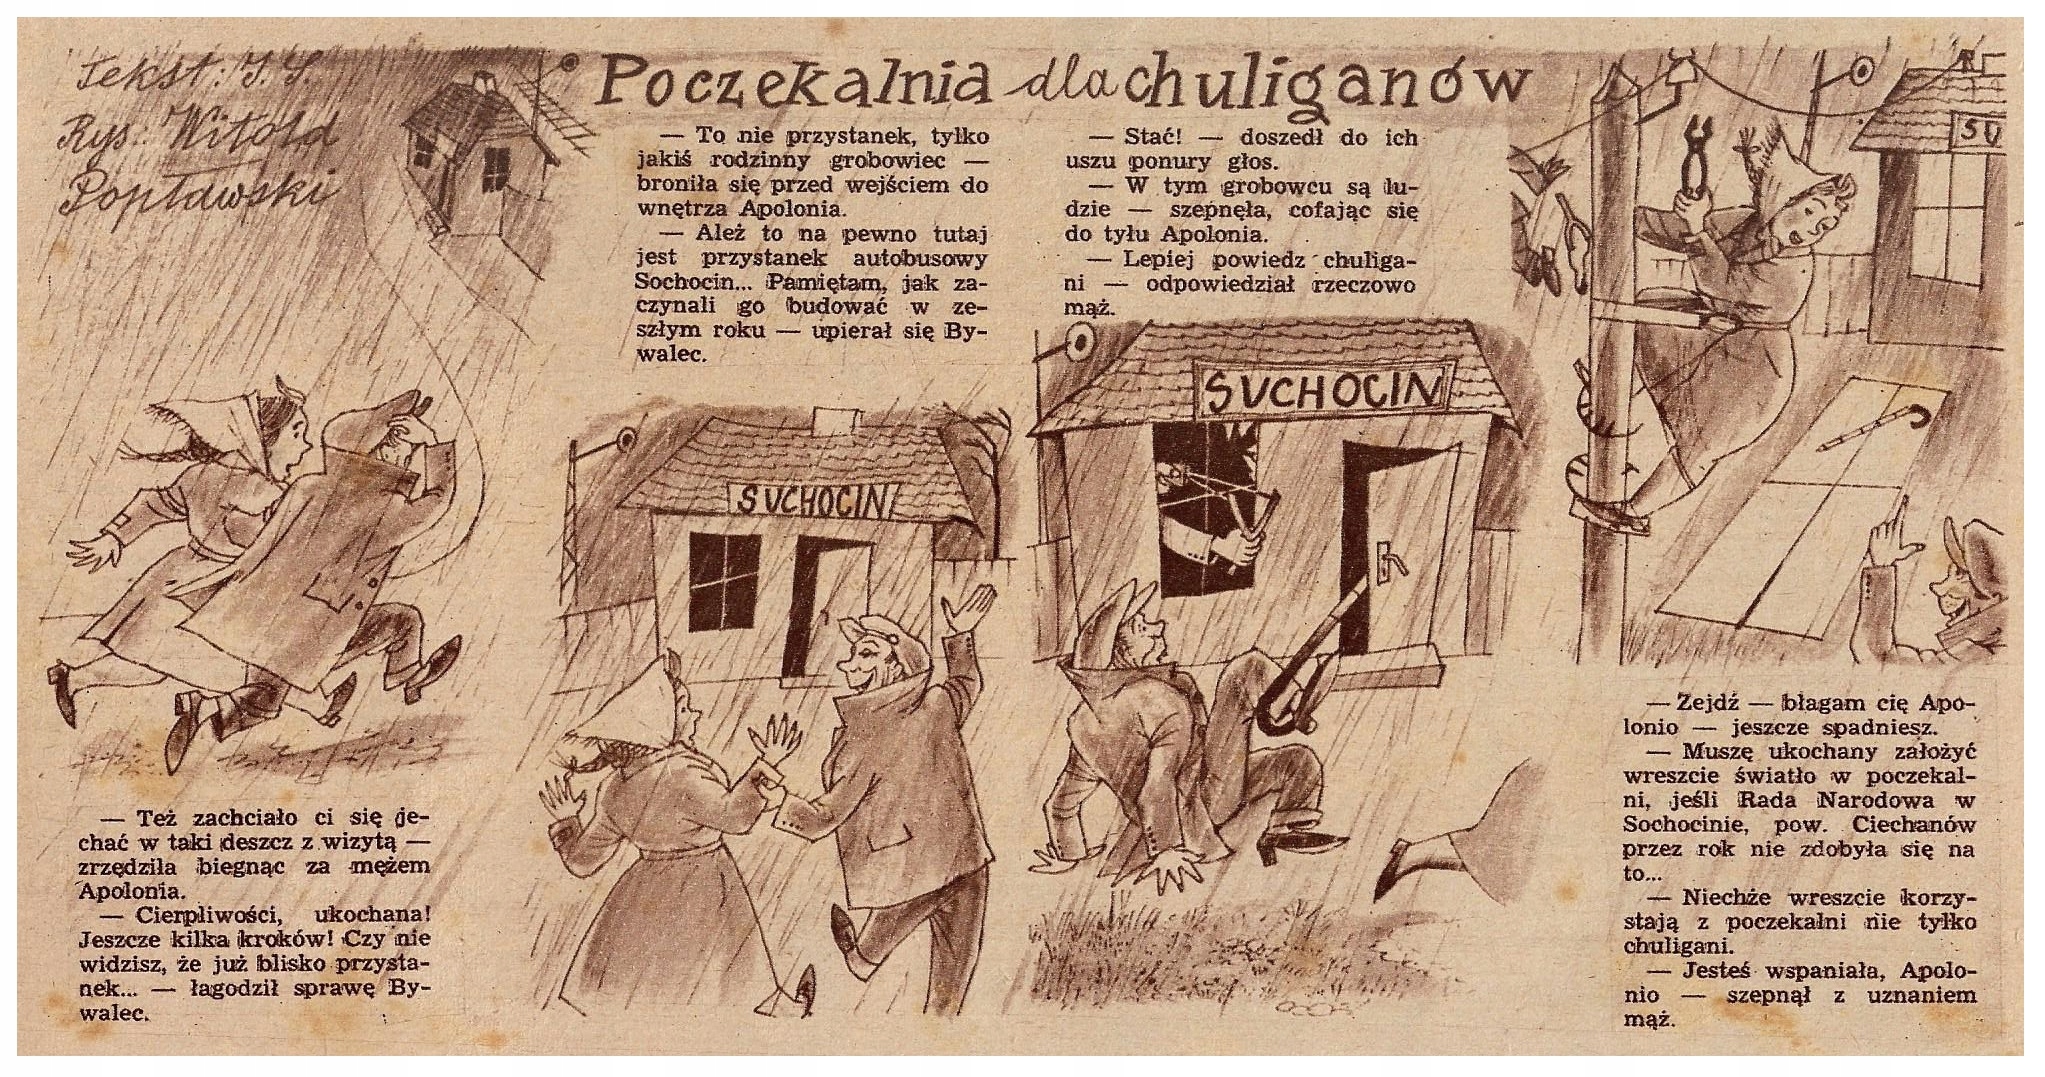 Tekst: J. S.
Rys: Witold
Popławski
Poczekalnia dla chuliganów
— Też zachciało ci się je-
chać w taki deszcz z wizytą —
zrzędziła biegnąc za mężem
Apolonia.
— Cierpliwości, ukochana!
Jeszcze kilka kroków! Czy nie
widzisz, że już blisko przysta-
nek... — łagodził sprawę By-
walec.
— To nie przystanek, tylko
jakiś rodzinny grobowiec —
broniła się przed wejściem do
wnętrza Apolonia.
— Ależ to na pewno tutaj
jest przystanek autobusowy
Sochocin... Pamiętam, jak za-
czynali go budować w ze-
szłym roku — upierał się By-
walec.
SUCHOCIN
— Stać! — doszedł do ich
uszu ponury głos.
— W tym grobowcu są lu-
dzie — szepnęła, cofając się
do tyłu Apolonia.
— Lepiej powiedz chuliga-
ni — odpowiedział rzeczowo
mąż.
SUCHOCIN
SU
— Zejdź — błagam cię Apo-
lonio — jeszcze spadniesz.
— Muszę ukochany założyć
wreszcie światło w poczekal-
ni, jeśli Rada Narodowa w
Sochocinie, pow. Ciechanów
przez rok nie zdobyła się na
to...
— Niechże wreszcie korzy-
stają z poczekalni nie tylko
chuligani.
— Jesteś wspaniała, Apolo-
nio — szepnął z uznaniem
mąż.